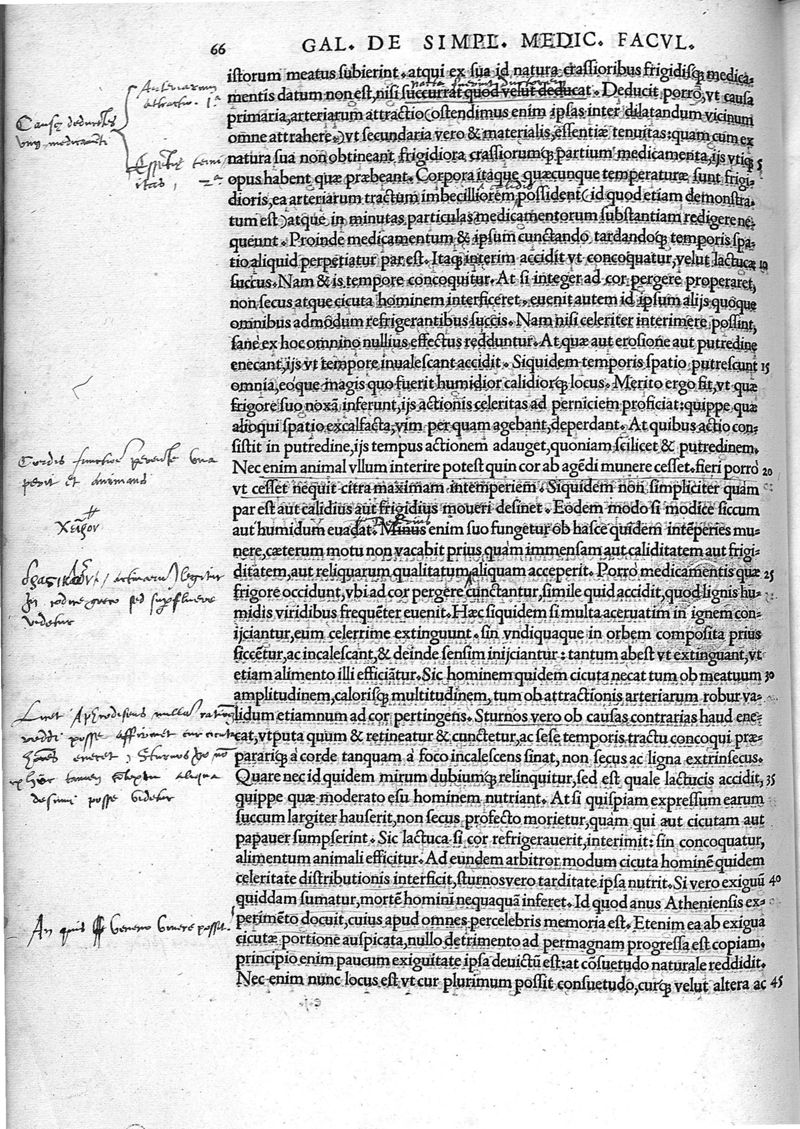 66 GAL. DE SIMPL. MEDIC. FACVL.
istorum meatus subierint. atqui ex sua id natura crassioribus frigidisq́; medica-
mentis datum non est, nisi succurrat quod velut deducat. Deducit porrò, vt causa
primaria, arteriarum attractio (ostendimus enim ipsas inter dilatandum vicinum
omne attrahere,) vt secundaria vero & materialis, essentiæ tenuitas: quam cum ex
natura sua non obtineant frigidiora crassiorumq́; partium medicamenta, ijs vtiq́; 5
opus habent quæ præbeant. Corpora itaque quæcunque temperaturæ sunt frigi-
dioris, ea arteriarum tractum imbecilliorem possident (id quod etiam demonstra-
tum est) atque in minutas particulas medicamentorum substantiam redigere ne-
queunt. Proinde medicamentum & ipsum cunctando tardandoq́; temporis spa-
tio aliquid perpetiatur par est. Itaq́; interim accidit vt concoquatur, velut lactucæ 10
succus. Nam & is tempore concoquitur. At si integer ad cor pergere properaret,
non secus atque cicuta hominem interficeret. euenit autem id ipsum alijs quoque
omnibus admodum refrigerantibus succis. Nam nisi celeriter interimere possint,
sane ex hoc omnino nullius effectus redduntur. At quæ aut erosione aut putredine
enecant, ijs vt tempore inualescant accidit. Siquidem temporis spatio putrescunt 15
omnia, eo que magis quo fuerit humidior calidiorq́; locus. Merito ergo fit, vt quæ
frigore suo noxã inferunt, ijs actionis celeritas ad perniciem proficiat: quippe quæ
alioqui spatio excalfacta, vim per quam agebant, deperdant. At quibus actio con-
sistit in putredine, ijs tempus actionem adauget, quoniam scilicet & putredinem.
Nec enim animal vllum interire potest quin cor ab agẽdi munere cesset. fieri porro 20
vt cesset nequit citra maximam intemperiem. Siquidem non simpliciter quàm
par est aut calidius aut frigidius moueri desinet. Eodem modo si modice siccum
aut humidum euadat. Minus enim suo fungetur ob hasce quidem intẽperies mu-
nere, cæterum motu non vacabit prius quàm immensam aut caliditatem aut frigi-
ditatem, aut reliquarum qualitatum aliquam acceperit. Porro medicamentis quæ 25
frigore occidunt, vbi ad cor pergere cunctantur, simile quid accidit, quod lignis hu-
midis viridibus frequẽter euenit. Hæc siquidem si multa aceruatim in ignem con-
ijciantur, eum celerrime extinguunt. sin vndiquaque in orbem composita prius
siccẽtur, ac incalescant, & deinde sensim inijciantur: tantum abest vt extinguant, vt
etiam alimento illi efficiãtur. Sic hominem quidem cicuta necat tum ob meatuum 30
amplitudinem, calorisq́; multitudinem, tum ob attractionis arteriarum robur va-
lidum etiamnum ad cor pertingens. Sturnos vero ob causas contrarias haud ene-
cat, vtputa quum & retineatur & cunctetur, ac sese temporis tractu concoqui præ-
parariq́; à corde tanquam à foco incalescens sinat, non secus ac ligna extrinsecus.
Quare nec id quidem mirum dubiumq́; relinquitur, sed est quale lactucis accidit, 35
quippe quæ moderato esu hominem nutriant. At si quispiam expressum earum
succum largiter hauserit, non secus profecto morietur, quam qui aut cicutam aut
papauer sumpserint. Sic lactuca si cor refrigerauerit, interimit: sin concoquatur,
alimentum animali efficitur. Ad eundem arbitror modum cicuta hominẽ quidem
celeritate distributionis interficit, sturnos vero tarditate ipsa nutrit. Si vero exiguũ 40
quiddam sumatur, mortẽ homini nequaquã inferet. Id quod anus Atheniensis ex-
perimẽto docuit, cuius apud omnes percelebris memoria est. Etenim ea ab exigua
cicutæ portione auspicata, nullo detrimento ad permagnam progressa est copiam.
principio enim paucum exiguitate ipsa deuictũ est: at cõsuetudo naturale reddidit.
Nec enim nunc locus est vt cur plurimum possit consuetudo, curq́; velut altera ac 45
Arteriarum
attractio. 1ª
tenui
itas, 2ª
Cordis functio
perit et
legitur
in codice graeco sed superfluere
videtur
Licet Aphrodisiensis nullam rationem
reddi posse affirmet cur cicuta
enecet, Sturnos
ex hoc tamen aliqua
desumi posse videtur
An quis veneno vivere possit.